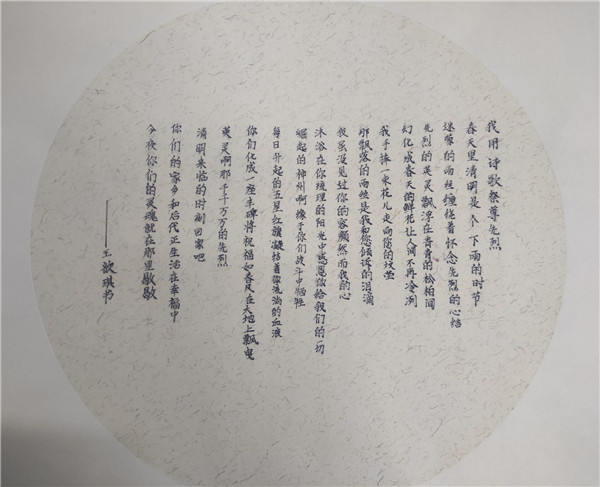 我用诗歌祭尊先烈
春天里清明是个下雨的时节
迷濛的雨丝缠绕着怀念先烈的心结
先烈的英灵飘浮在青青的松柏间
幻化成春天的鲜花让人间不再冷冽
我手捧一束花儿走向您的坟茔
那飘落的雨丝是我和您倾诉的泪滴
我虽没见过你的容颜然而我的心
沐浴在你流理的阳光中感恩你给我们的一切
崛起的神州啊缘于你们战斗中牺牲
每日升起的五星红旗凝结着你流淌的血液
你们化成一座丰碑将祝福如春风在大地上飘曳
英灵啊那千千万万的先烈
清明来临的时刻回家吧
你们的家乡和后代正生活在幸福中
今夜你们的灵魂就在那里歇歇
——王歆琪书